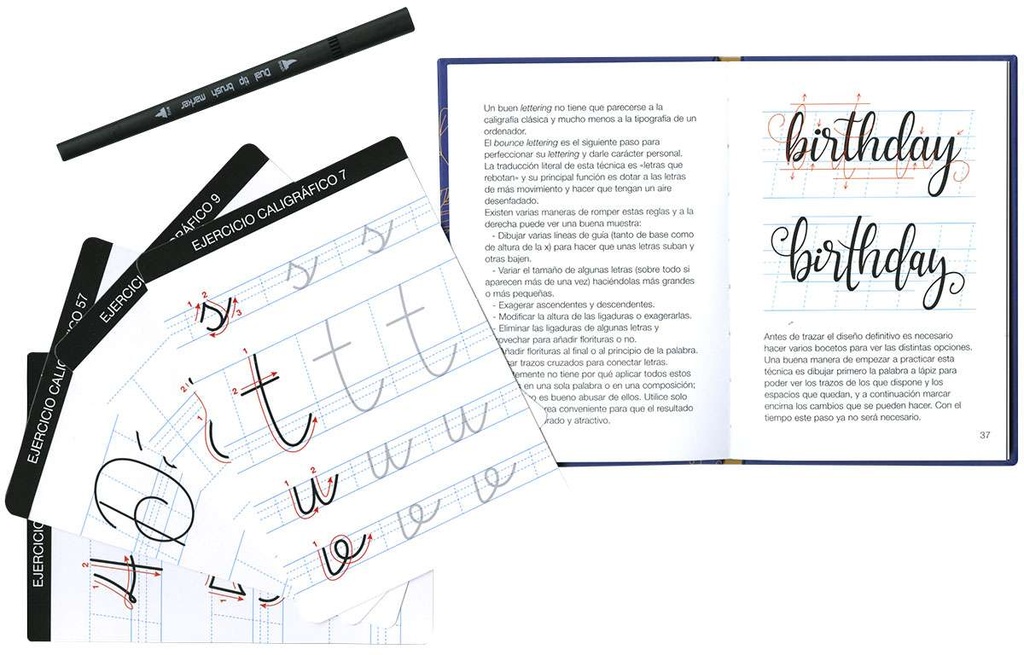 Dual tip brush marker
EJERCICIO CALIGRÁFICO 7
GRÁFICO 9
EJERCICIO
57
EJERCICIO
s s s
t t t
u u u
e e e
D
4
Un buen lettering no tiene que parecerse a la
caligrafía clásica y mucho menos a la tipografía de un
ordenador.
El bounce lettering es el siguiente paso para
perfeccionar su lettering y darle carácter personal.
La traducción literal de esta técnica es «letras que
rebotan» y su principal función es dotar a las letras
de más movimiento y hacer que tengan un aire
desenfadado.
Existen varias maneras de romper estas reglas y a la
derecha puede ver una buena muestra:
- Dibujar varias líneas de guía (tanto de base como
de altura de la x) para hacer que unas letras suban y
otras bajen.
- Variar el tamaño de algunas letras (sobre todo si
aparecen más de una vez) haciéndolas más grandes
o más pequeñas.
- Exagerar ascendentes y descendentes.
- Modificar la altura de las ligaduras o exagerarlas.
- Eliminar las ligaduras de algunas letras y
ovechar para añadir florituras o no.
ñadir florituras al final o al principio de la palabra.
ar trazos cruzados para conectar letras.
emente no tiene por qué aplicar todos estos
en una sola palabra o en una composición;
o es bueno abusar de ellos. Utilice solo
rea conveniente para que el resultado
rado y atractivo.
birthday
birthday
Antes de trazar el diseño definitivo es necesario
hacer varios bocetos para ver las distintas opciones.
Una buena manera de empezar a practicar esta
técnica es dibujar primero la palabra a lápiz para
poder ver los trazos de los que dispone y los
espacios que quedan, y a continuación marcar
encima los cambios que se pueden hacer. Con el
tiempo este paso ya no será necesario.
37